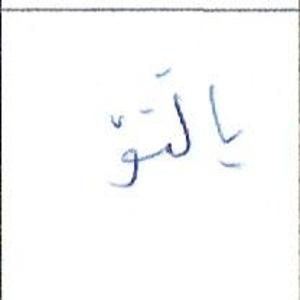 يالَتوّ